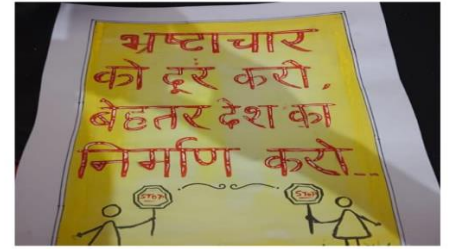 भ्रष्टाचार
को दूर करो,
बेहतर देश का
निर्माण करो...
STOP
STOP